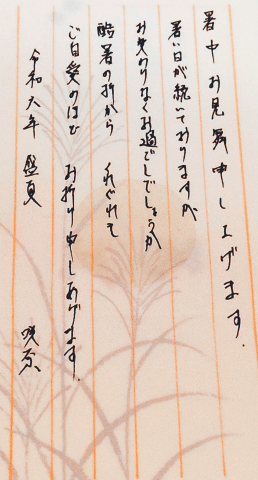 暑中お見舞申し上げます.
暑い日が続いておりますが
お変わりなくお過ごしでしょうか
酷暑の折から くれぐれも
ご自愛のほど お祈り申しあげます.
令和六年 盛夏
咲原